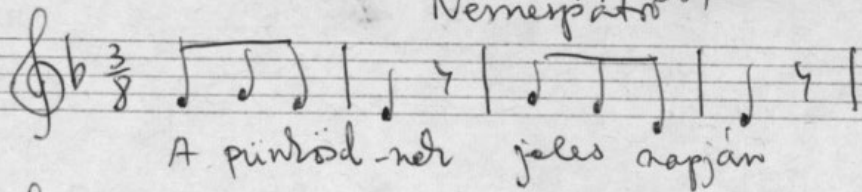 Nemespátró
3/8
A pünkösd-nek jeles napján